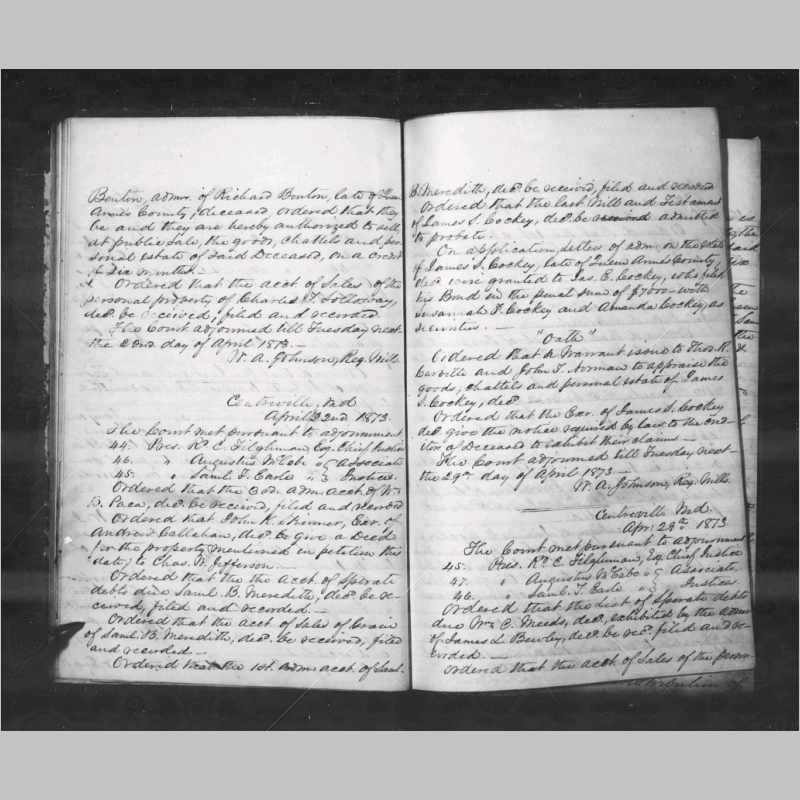 Benton, admr. of Richard Benton, late of Queen
Anne's County, deceased, ordered that they
be and they are hereby authorized to sell
at public sale, the goods, chattels and per-
sonal estate of said Deceased, on a credit
of Six months.—
Ordered that the acct of Sales of the
personal property of Charles T. Holloway,
decd. be received, filed and recorded.
The Court adjourned till Tuesday next
the 22nd day of April 1873.—
W. A. Johnson, Reg. Wills
Centreville, Md
April 22nd 1873.
The Court met pursuant to adjournment
44. Pres. Rd. C. Tilghman, Esq. Chief Justice
46. " Augustus McCabe " } Associate
45. " Saml. T. Earle " } Justices.
Ordered that the 2nd. adm. acct. of Wm
B. Paca, decd. be received, filed and record
Ordered that John K. Skinner, Exr. of
Andrew Callahan, decd. to give a Deed
for the property mentioned in petition this
date, to Chas. W. Jefferson.—
Ordered that the the Acct. of Sperate
debts due Saml. B. Meredith, decd. be re-
ceived, filed and recorded.—
Ordered that the acct of Sales of Grain
of Saml. B. Meredith, decd. be received, filed
and recorded.—
Ordered that the 1st. adm. acct. of Saml.
B. Meredith, decd. be received, filed and recorded
Ordered that the last Will and Testament
of James S. Cockey, decd. be received admitted
to probate.
On application, letters of adm. on the estate
of James S. Cockey, late of Queen Anne's County,
decd. were granted to Jas. E. Cockey, who filed
his Bond in the penal sum of $7000— with
Susannah T. Cockey and Amanda Cockey, as
securities.—
"Oath"
Ordered that a Warrant issue to Thos. R.
Carville and John T. Norman to appraise the
goods, chattels and personal estate of James
S. Cockey, decd
Ordered that the Exr. of James S. Cockey
decd give the notice required by law to the cred-
itors of Deceased to exhibit their claims—
The Court adjourned till Tuesday next—
the 29th day of April 1873—
W. A. Johnson, Reg. Wills
Centreville Md.
Apr. 29th 1873
The Court met pursuant to adjournment
45. Pres. Rd. C. Tilghman, Esq. Chief Justice
47. " Augustus McCabe " } Associate
46. " Saml. T. Earle " } Justices
Ordered that the list of Sperate debts
due Wm. C. Meeds, decd, exhibited by the admr
of James L. Bewley, decd. be recd. filed and re-
corded.—
Ordered that the acct. of Sales of the person